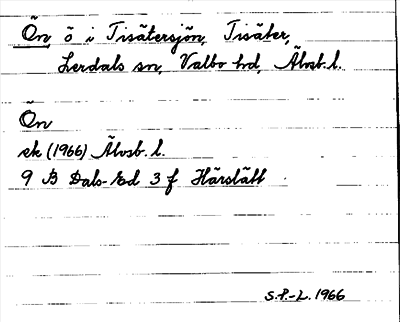 Ön, ö i Tisätersjön, Tisäter,
Lerdals sn, Valbo hd, Älvsb. l.
Ön
ek (1966) Älvsb. l.
9 B Dals-Ed 3 f Härslätt
S.P.-L. 1966